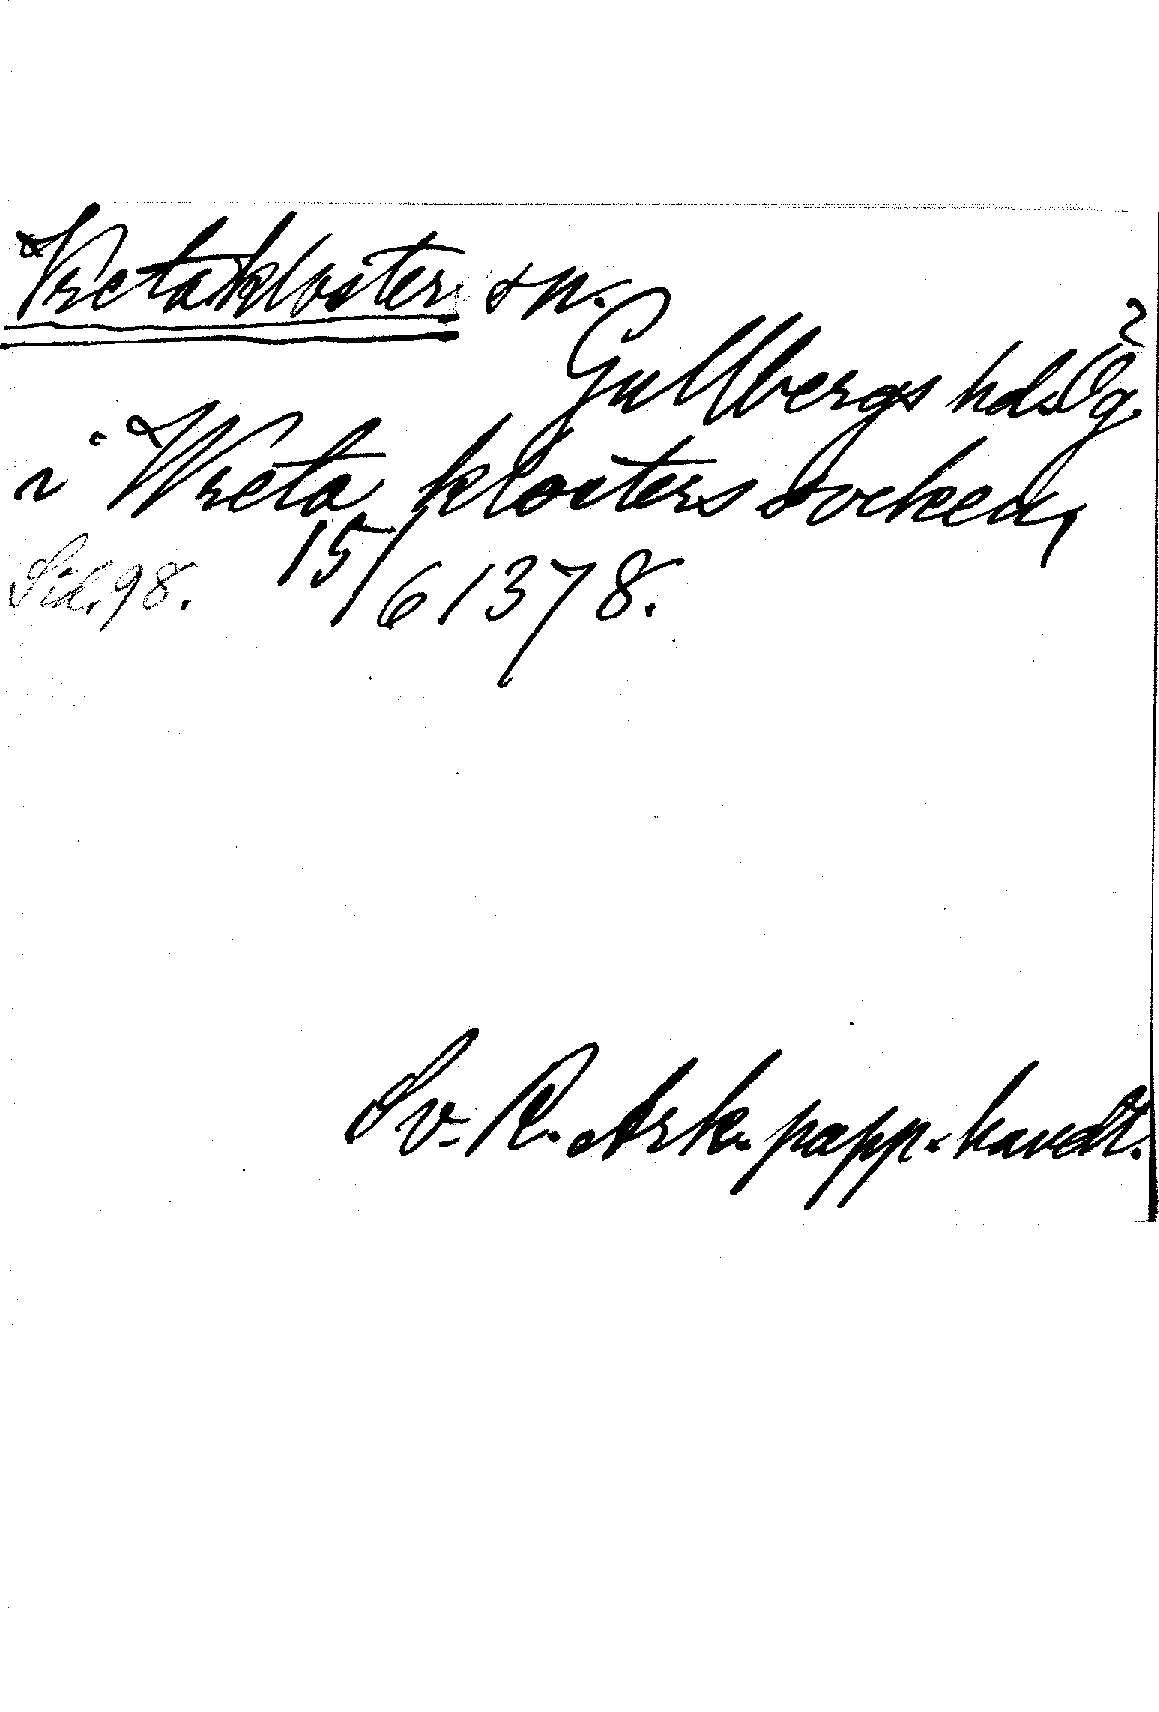 Vreta kloster sn.
Gullbergs hd. Ög.
i Wreta klosters socken,
Sid. 98. 15/6 1378.
Sv. R. Ark. papp. handt.